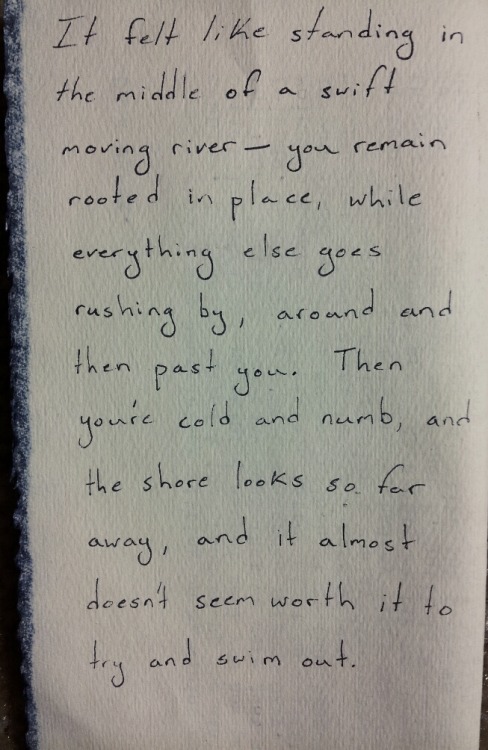 It felt like standing in
the middle of a swift
moving river — you remain
rooted in place, while
everything else goes
rushing by, around and
then past you. Then
you're cold and numb, and
the shore looks so far
away, and it almost
doesn't seem worth it to
try and swim out.